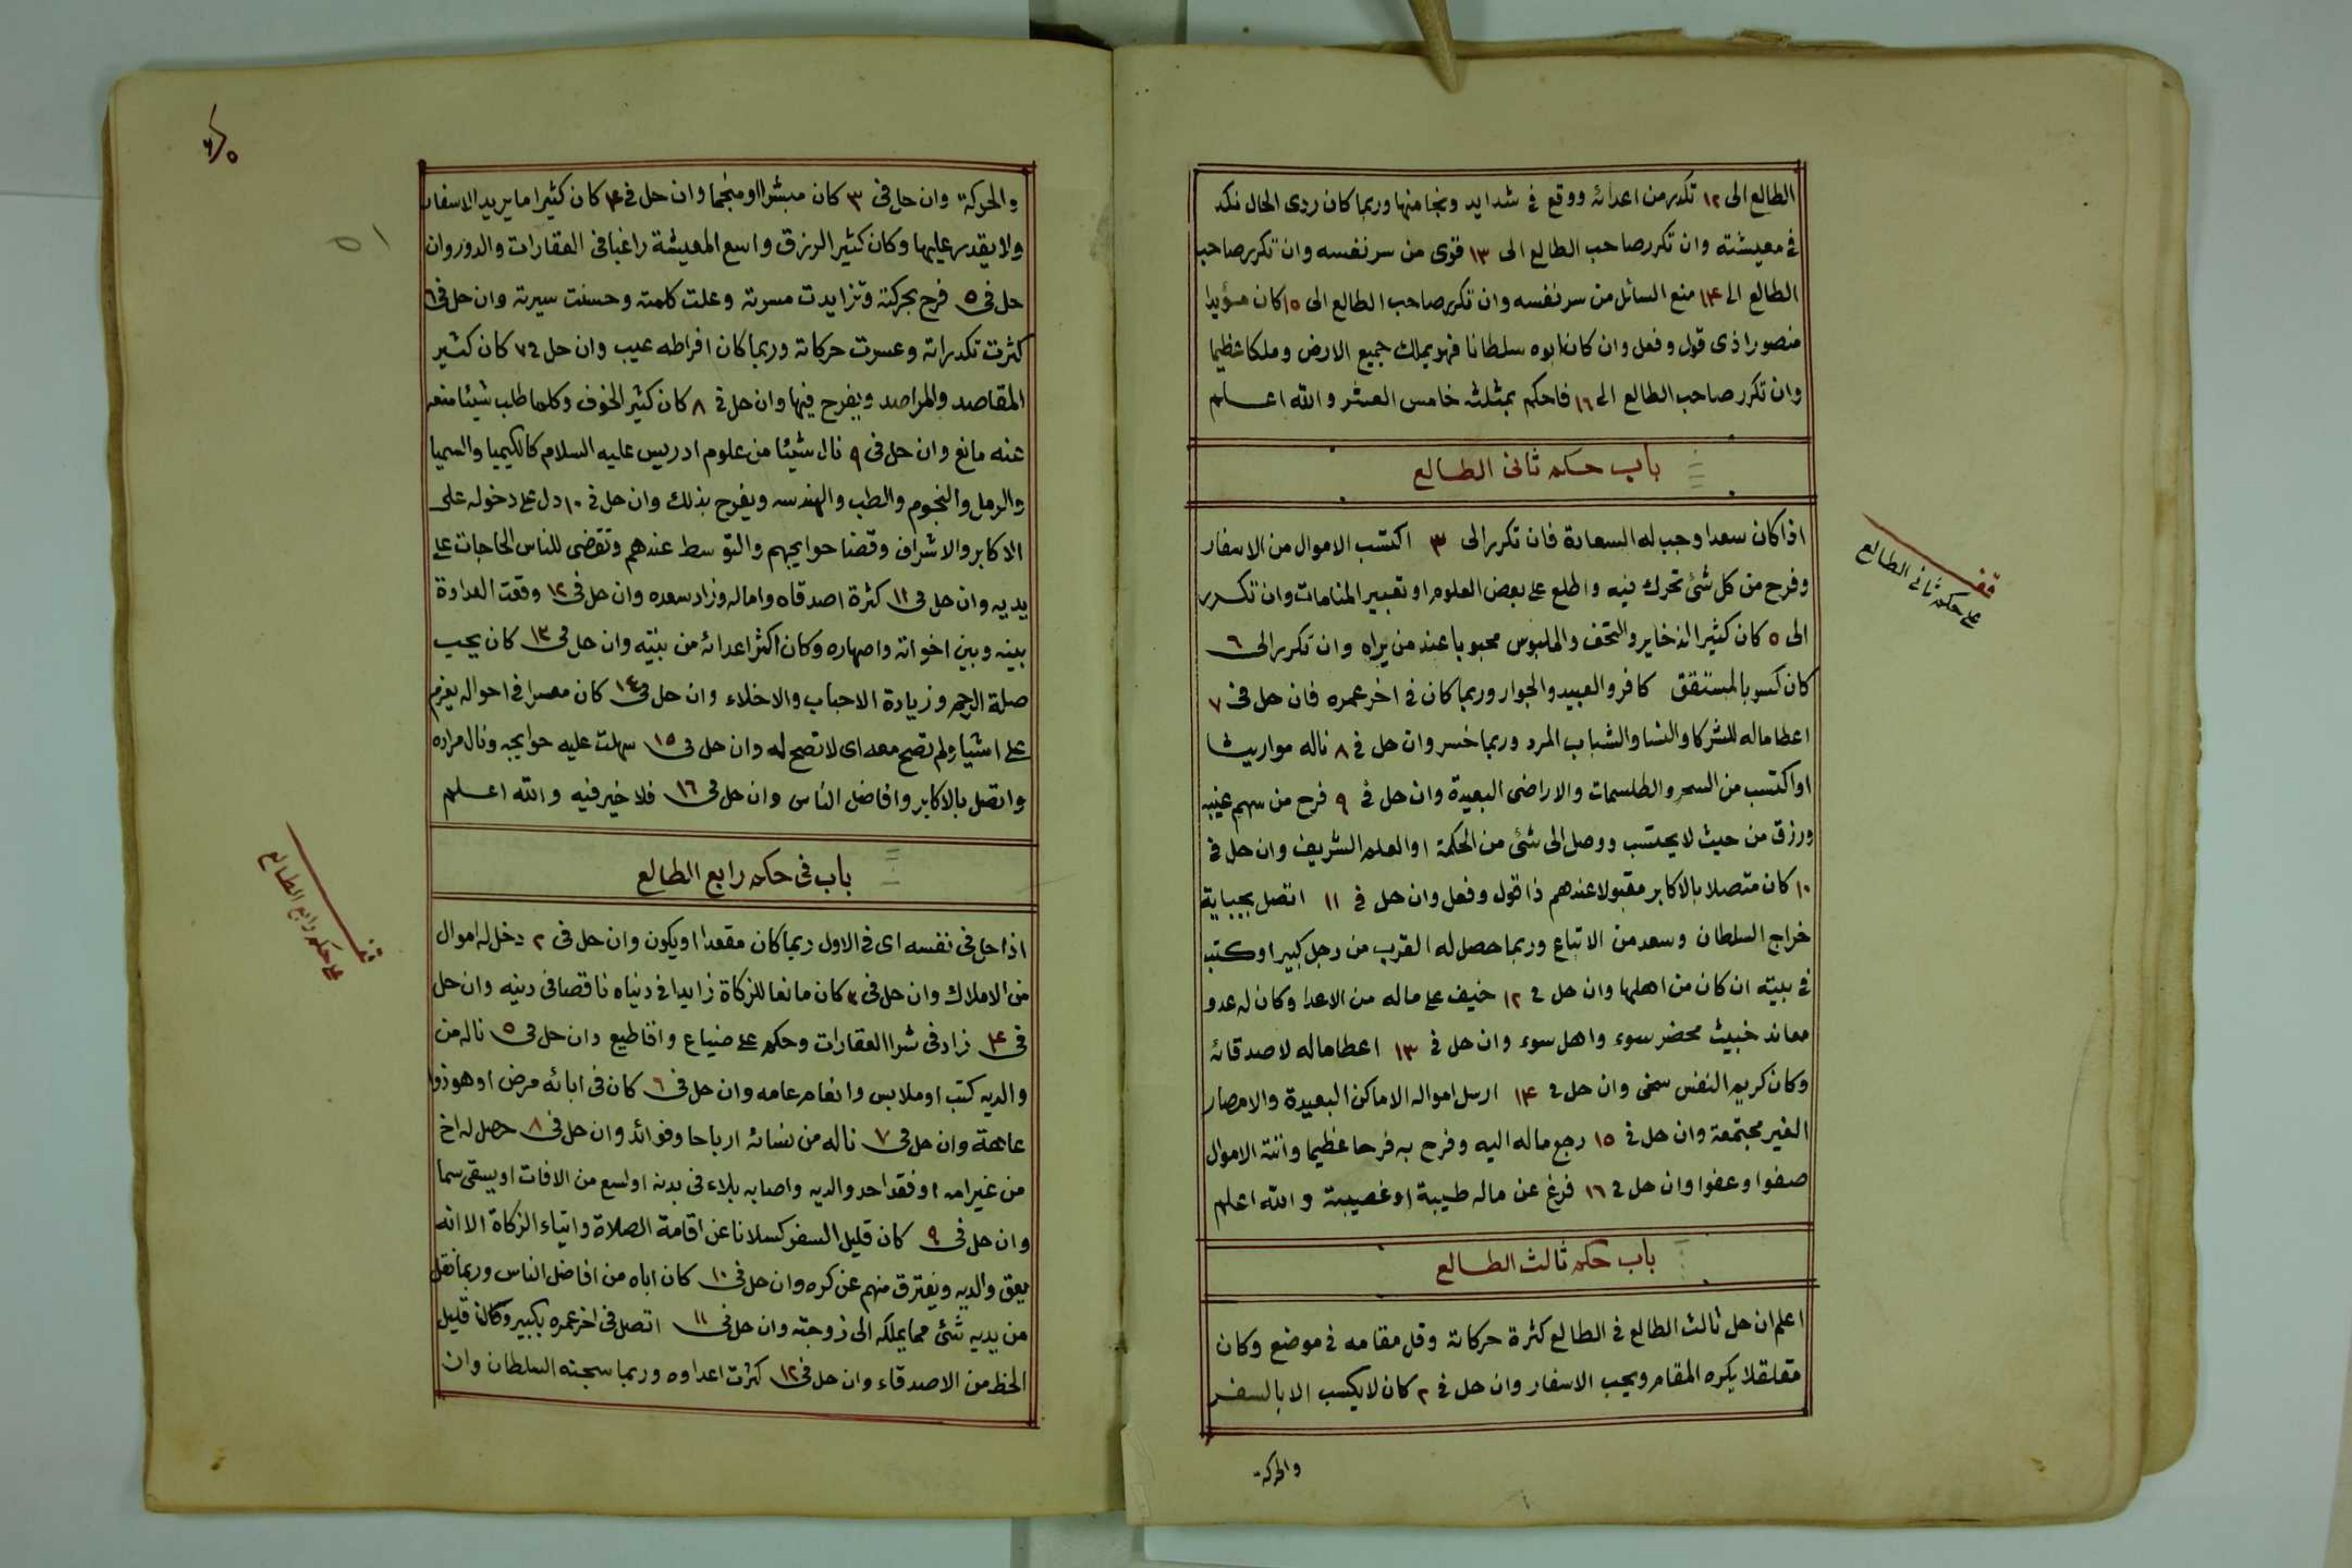 الطالع الى ١٢ تكدر من اعدائه ووقع فى شدايد ونجا منها وربما كان ردى الحال نكد
فى معيشته وان تكرر صاحب الطالع الى ١٣ قوى من سر نفسه وان تكرر صاحب
الطالع الى ١۴ منع السائل من سر نفسه وان تكرر صاحب الطالع الى ١٥ كان مؤيدا
منصورا ذى قول وفعل وان كان ابوه سلطانا فهو يملك جميع الارض وملكا عظيما
وان تكرر صاحب الطالع الى ١٦ فاحكم بمثلثه خامس العشر والله اعلم
باب حكم ثانى الطالع
اذا كان سعدا وجب له السعادة فان تكرر الى ٣ اكتسب الاموال من الاسفار
وفرح من كل شئ تحرك فيه واطلع على بعض العلوم او تعبير المنامات وان تكرر
الى ٥ كان كثير الذخاير والتحف والملبوس محبوبا عند من يراه وان تكرر الى ٦
كان كسوبا كافر والعبيد والجوار وربما كان فى اخر عمره فان حل فى ٧
اعطا ماله للشركا والنسا والشباب المرد وربما خسر وان حل فى ٨ ناله مواريث
او اكتسب من السحر والطلسمات والاراضى البعيدة وان حل فى ٩ فرح من سهم غيبه
ورزق من حيث لا يحتسب ووصل الى شئ من الحكمة او العلم الشريف وان حل فى
١٠ كان متصلا بالاكابر مقبولا عندهم ذا قول وفعل وان حل فى ١١ اتصل بجباية
خراج السلطان وسعد من الاتباع وربما حصل له القرب من رجل كبير او كتب
فى بيته ان كان من اهلها وان حل فى ١٢ خيف على ماله من الاعدا وكان له عدو
معاند خبيث محضر سوء واهل سوء وان حل فى ١٣ اعطا ماله لاصدقائه
وكان كريم النفس سخى وان حل فى ١۴ ارسل امواله الاماكن البعيدة والامصار
الغير مجتمعة وان حل فى ١٥ رجع ماله اليه وفرح به فرحا عظيما واتته الاموال
صفوا وعفوا وان حل فى ١٦ فرغ عن ماله طيبة او غصيبة والله اعلم
باب حكم ثالث الطالع
اعلم ان حل ثالث الطالع فى الطالع كثرة حركاته وقل مقامه فى موضع وكان
مقلقلا يكره المقام ويحب الاسفار وان حل فى ٢ كان لا يكسب الا بالسفر
والحركة
قف
على حكم ثانى الطالع
والحركة وان حل فى ٣ كان مبشرا او منجما وان حل فى ۴ كان كثيرا ما يريد الاسفار
ولا يقدر عليها وكان كثير الرزق واسع المعيشة راغبا فى العقارات والدور وان
حل فى ٥ فرح بحركته وتزايدت مسرته وعلت كلمته وحسنت سيرته وان حل فى ٦
كثرت تكدراته وعسرت حركاته وربما كان افراطه عيب وان حل فى ٧ كان كثير
المقاصد والمراصد ويفرح فيها وان حل فى ٨ كان كثير الخوف وكلما طلب شيئا منعه
عنه مانع وان حل فى ٩ نال شيئا من علوم ادريس عليه السلام كالكيميا والسميا
والرمل والنجوم والطب والهندسه ويفرح بذلك وان حل فى ١٠ دل على دخوله على
الاكابر والاشراف وقضا حوايجهم والتوسط عندهم وتقضى للناس الحاجات على
يديه وان حل فى ١١ كثرة اصدقاه واماله وزاد سعده وان حل فى ١٢ وقعت العداوة
بينه وبين اخواته واصهاره وكان اكثر اعدائه من بيته وان حل فى ١٣ كان يحب
صلة الرحم وزيادة الاحباب والاخلاء وان حل فى ١٤ كان معسرا فى احواله يعزم
على اشيا ولم تصح معه اى لا تصح له وان حل فى ١٥ سهلت عليه حوايجه ونال مراده
واتصل بالاكابر وافاضل الناس وان حل فى ١٦ فلا خير فيه والله اعلم
باب فى حكم رابع الطالع
اذا حل فى نفسه اى فى الاول ربما كان مقعدا او يكون وان حل فى ٢ دخل له اموال
من الاملاك وان حل فى ٣ كان مانعا للزكاة زايدا فى دنياه ناقصا فى دينه وان حل
فى ۴ زاد فى شرا العقارات وحكم على ضياع واقاطيع وان حل فى ٥ ناله من
والديه كتب او ملابس وانعام عامه وان حل فى ٦ كان فى ابائه مرض او هو ذوا
عاهة وان حل فى ٧ ناله من نسائه ارباحا وفوائد وان حل فى ٨ حصل له اخ
من غير امه او فقد احد والديه واصابه بلاء فى بدنه او لسع من الافات او يسقى سما
وان حل فى ٩ كان قليل السفر كسلانا عن اقامة الصلاة وايتاء الزكاة الا انه
يعق والديه ويفترق منهم عن كره وان حل فى ١٠ كان اباه من افاضل الناس وربما نقل
من يديه شئ مما يملكه الى زوجته وان حل فى ١١ اتصل فى اخر عمره بكبير وكان قليل
الحظ من الاصدقاء وان حل فى ١٢ كثرت اعداوه وربما سجنه السلطان وان
قف
على حكم رابع الطالع
٥١